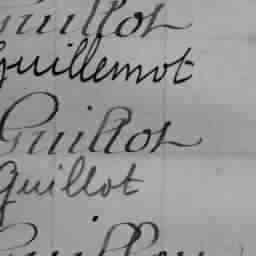 Guillot
Guillemot
Guillot
Guillot